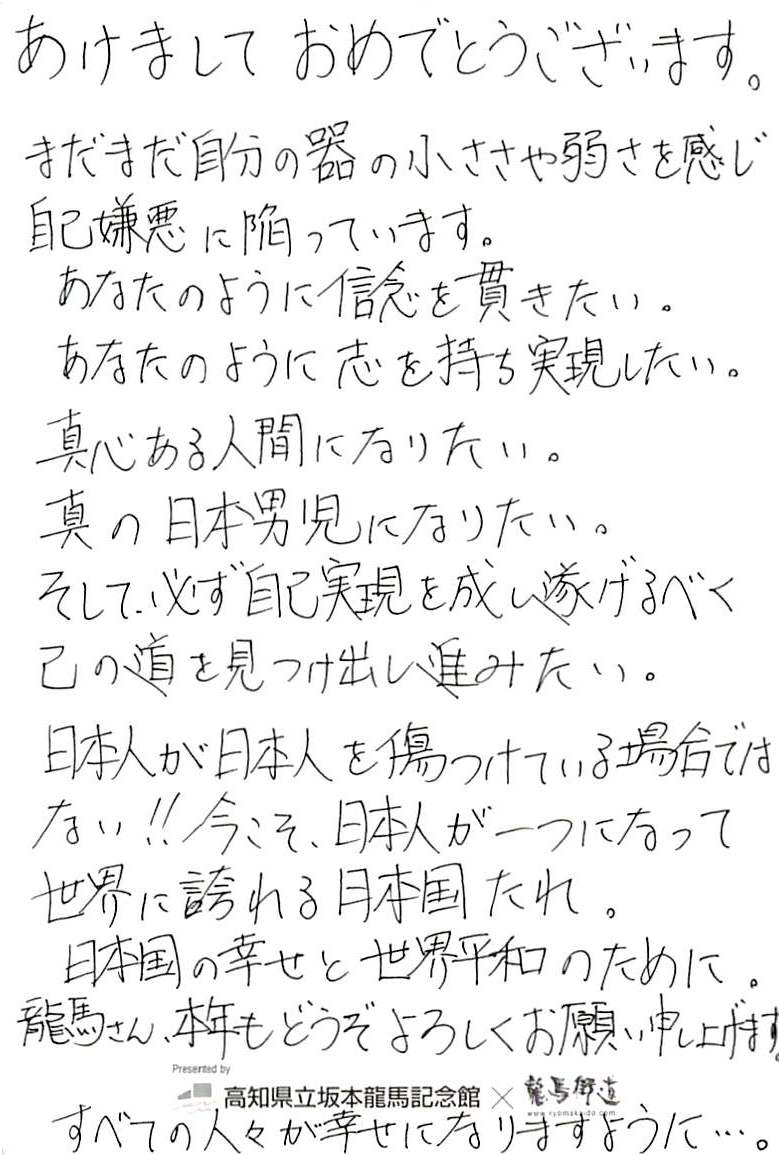 あけまして おめでとうございます。
まだまだ自分の器の小ささや弱さを感じ
自己嫌悪に陥っています。
あなたのように信念を貫きたい。
あなたのように志を持ち実現したい。
真心ある人間になりたい。
真の日本男児になりたい。
そして、必ず自己実現を成し遂げるべく
己の道を見つけ出し進みたい。
日本人が日本人を傷つけている場合では
ない!!今こそ、日本人が一つになって
世界に誇れる日本国たれ。
日本国の幸せと世界平和のために。
龍馬さん、本年もどうぞよろしくお願い申し上げます。
Presented by
高知県立坂本龍馬記念館 × 龍馬街道
www.ryomakaido.com
すべての人々が幸せになりますように…。